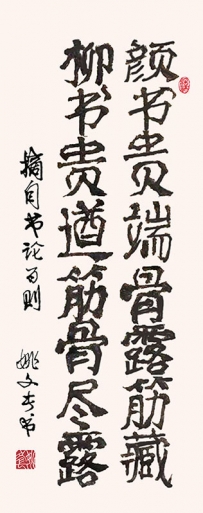 颜书贵端骨露筋藏
柳书贵遒筋骨尽露
摘自书论百则
姚文奎书